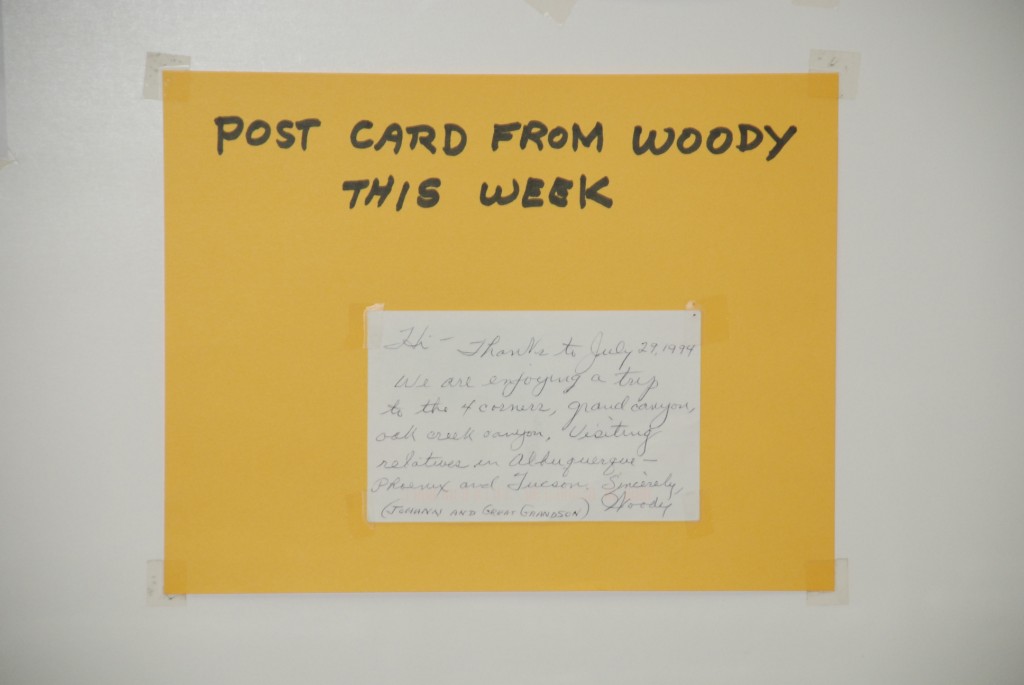 POST CARD FROM WOODY
THIS WEEK
Hi - Thanks to July 29, 1999
We are enjoying a trip
to the 4 corners, grand canyon,
oak creek canyon, Visiting
relatives in Albuquerque -
Phoenix and Tucson. Sincerely,
(JOHANN AND GREAT GRANDSON) Woody